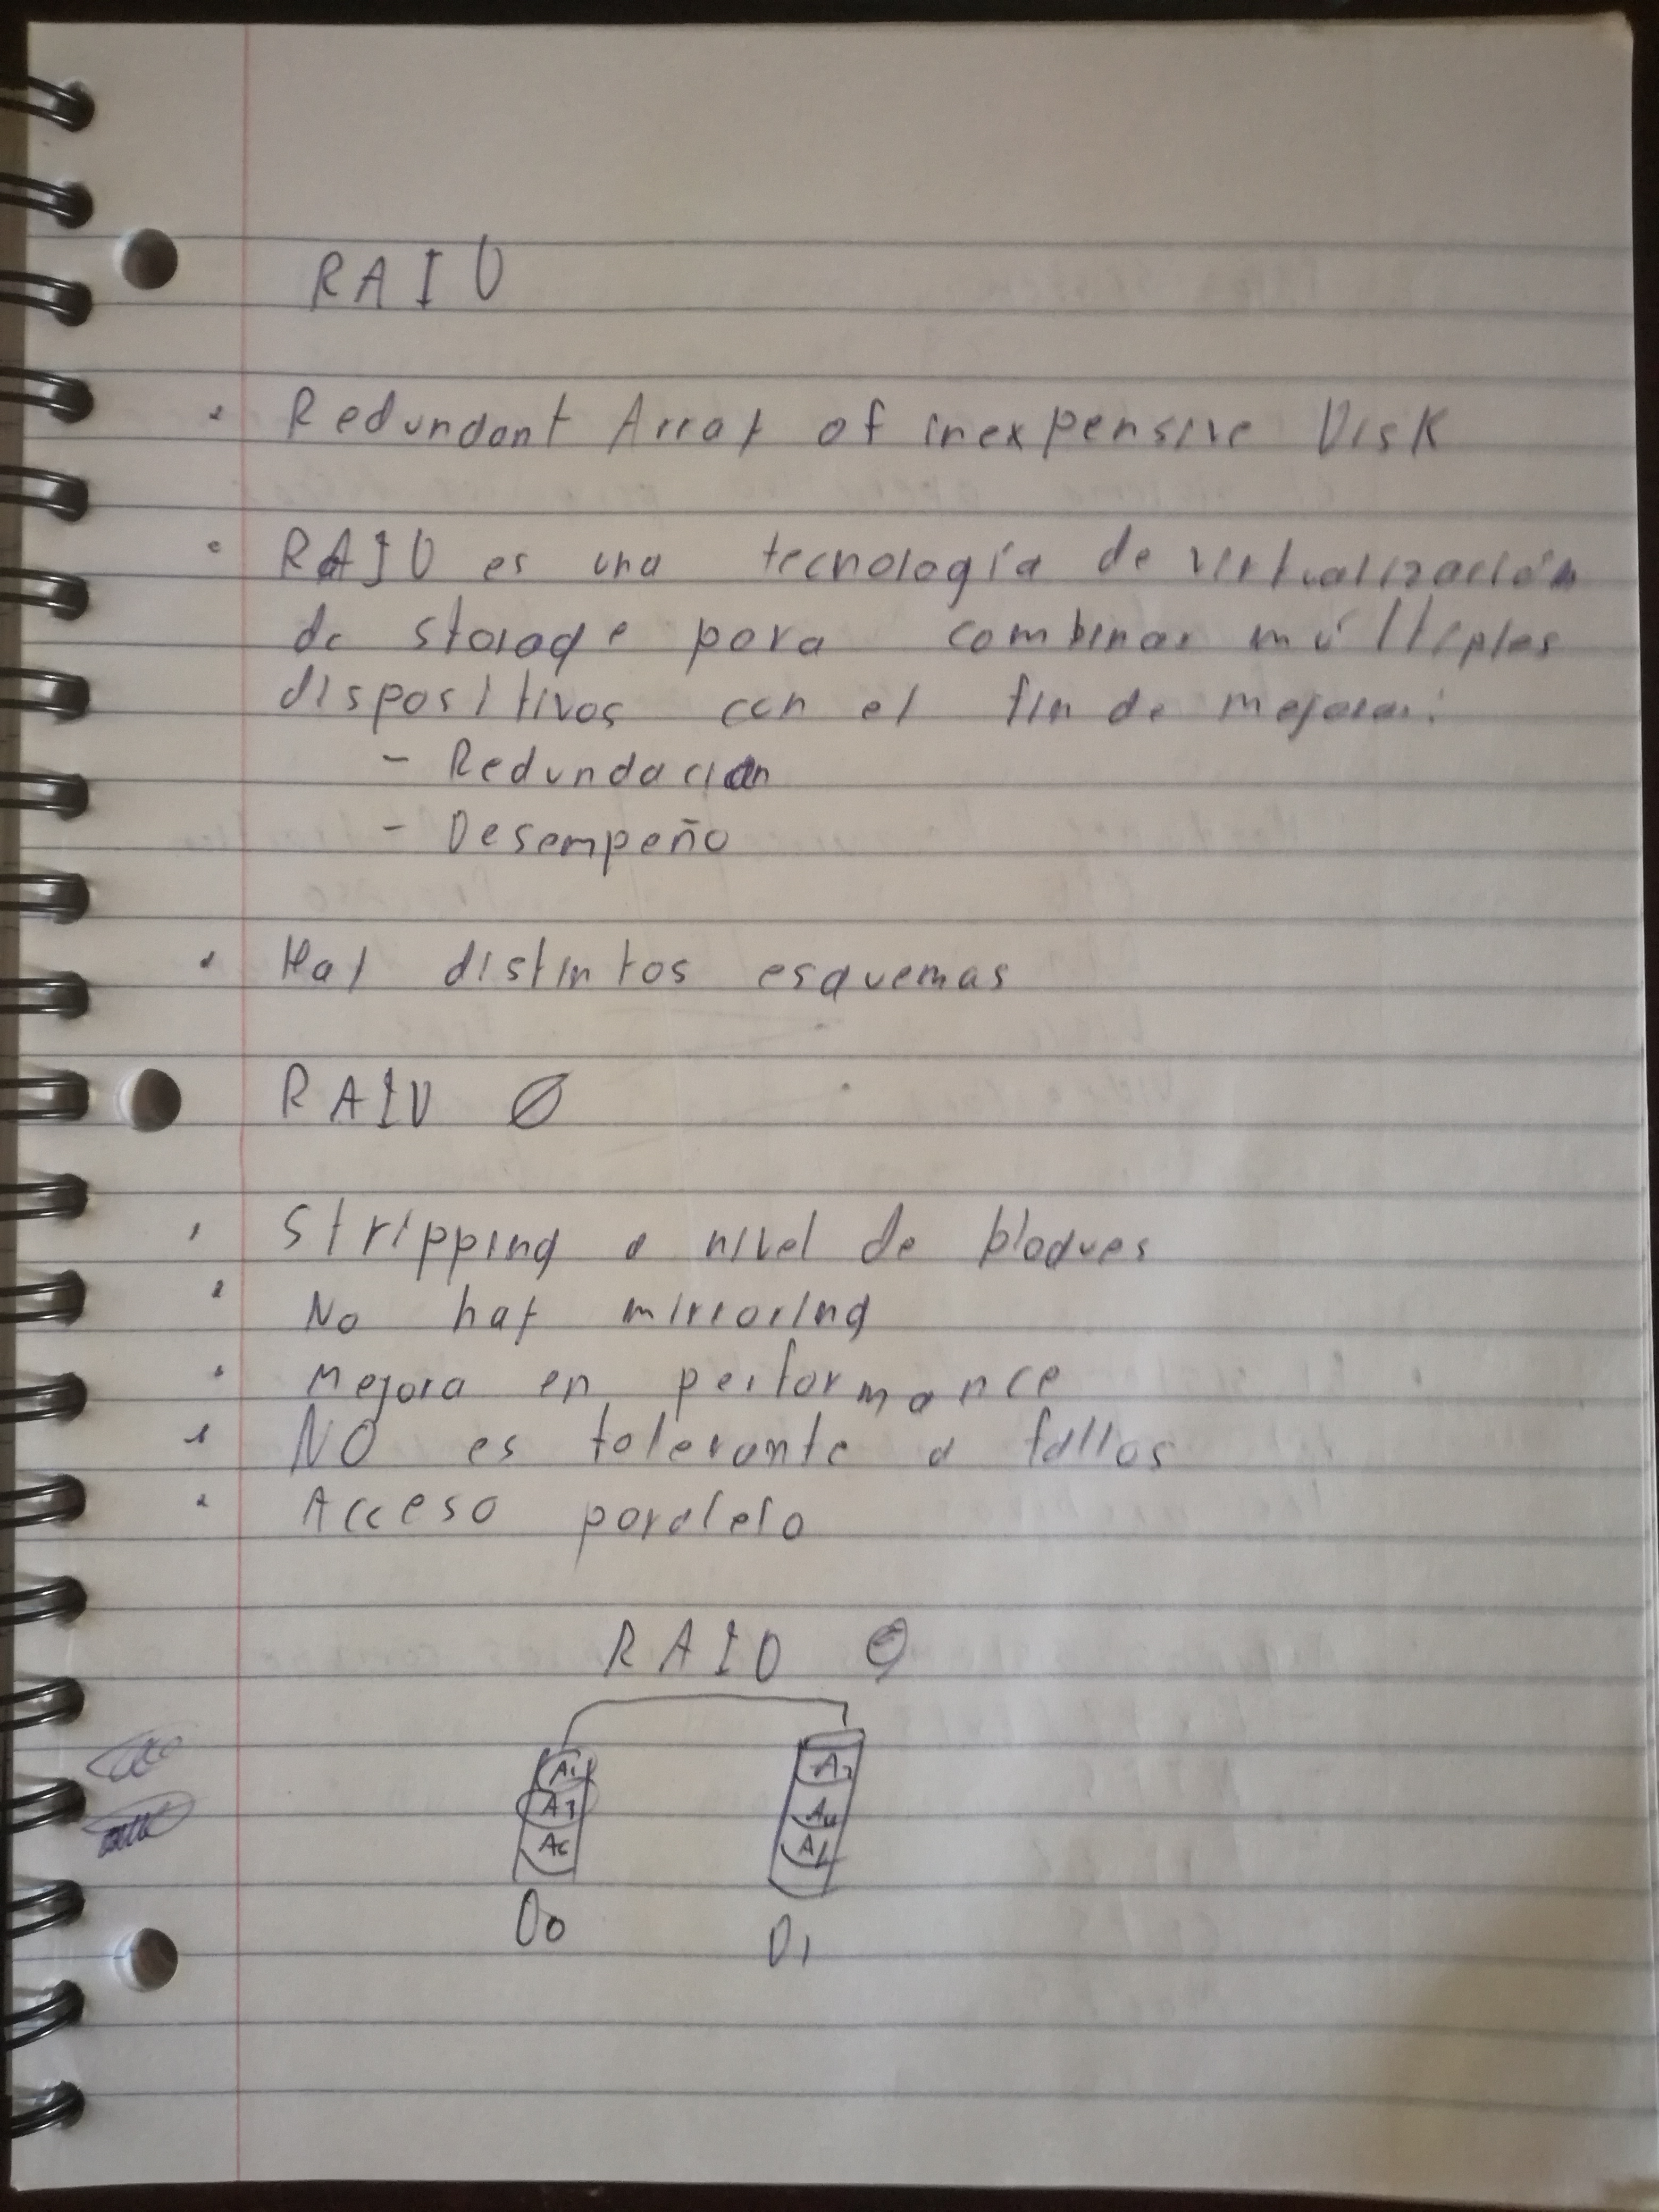 RAID
• Redundant Array of inexpensive Disk
• RAID es una tecnología de virtualización
de storage para combinar múltiples
dispositivos con el fin de mejorar:
- Redundación
- Desempeño
• Hay distintos esquemas
RAID 0
• Stripping a nivel de bloques
• No hay mirroring
• Mejora en performance
• NO es tolerante a fallos
• Acceso paralelo
RAID 0
A1 A2
A3 A4
D0 D1